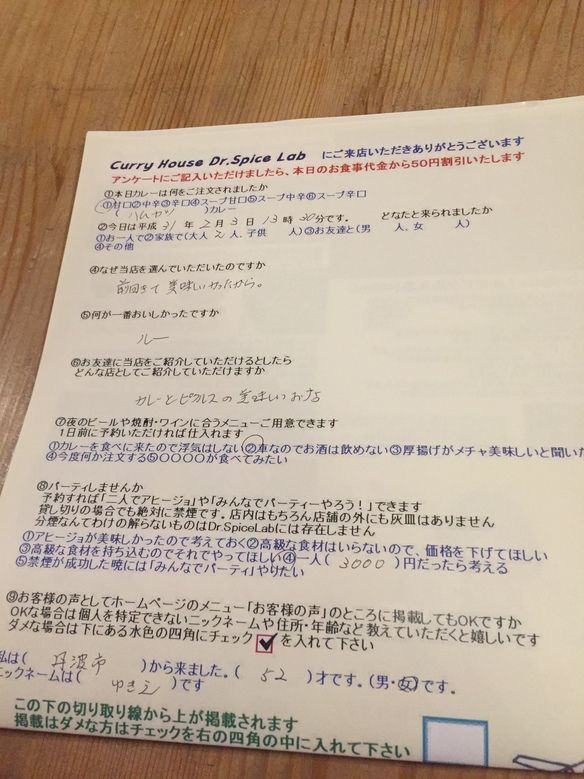 Curry House Dr.Spice Lab にご来店いただきありがとうございます
アンケートにご記入いただけましたら、本日のお食事代金から50円割引いたします
①本日カレーは何をご注文されましたか
①甘口②中辛③辛口④スープ甘口⑤スープ中辛⑥スープ辛口
(ハムカツ)カレー
②今日は平成31年2月3日13時30分です。 どなたと来られましたか
①お一人で②家族で(大人2人、子供 人)③お友達と(男 人、女 人)
④その他
④なぜ当店を選んでいただいたのですか
前回きて美味しかったから。
⑤何が一番おいしかったですか
ルー
⑥お友達に当店をご紹介していただけるとしたら
どんな店としてご紹介していただけますか
カレーとピクルスの美味しいお店
⑦夜のビールや焼酎・ワインに合うメニューご用意できます
1日前に予約いただければ仕入れます
①カレーを食べに来たので浮気はしない②車なのでお酒は飲めない③厚揚げがメチャ美味しいと聞いた
④今度何か注文する⑤〇〇〇〇が食べてみたい
⑧パーティしませんか
予約すれば「二人でアヒージョ」や「みんなでパーティーやろう!」できます
貸し切りの場合でも絶対に禁煙です。店内はもちろん店舗の外にも灰皿はありません
分煙なんてわけの解らないものはDr.SpiceLabには存在しません
①アヒージョが美味しかったので考えておく②高級な食材はいらないので、価格を下げてほしい
③高級な食材を持ち込むのでそれでやってほしい④一人(3000)円だったら考える
⑤禁煙が成功した暁には「みんなでパーティ」やりたい
⑨お客様の声としてホームページのメニュー「お客様の声」のところに掲載してもOKですか
OKな場合は個人を特定できないニックネームや住所・年齢など教えていただくと嬉しいです
ダメな場合は下にある水色の四角にチェックを入れて下さい
私は(丹波市)から来ました。(52)才です。(男・女)です。
ニックネームは(ゆきえ)です
この下の切り取り線から上が掲載されます
掲載はダメな方はチェックを右の四角の中に入れて下さい